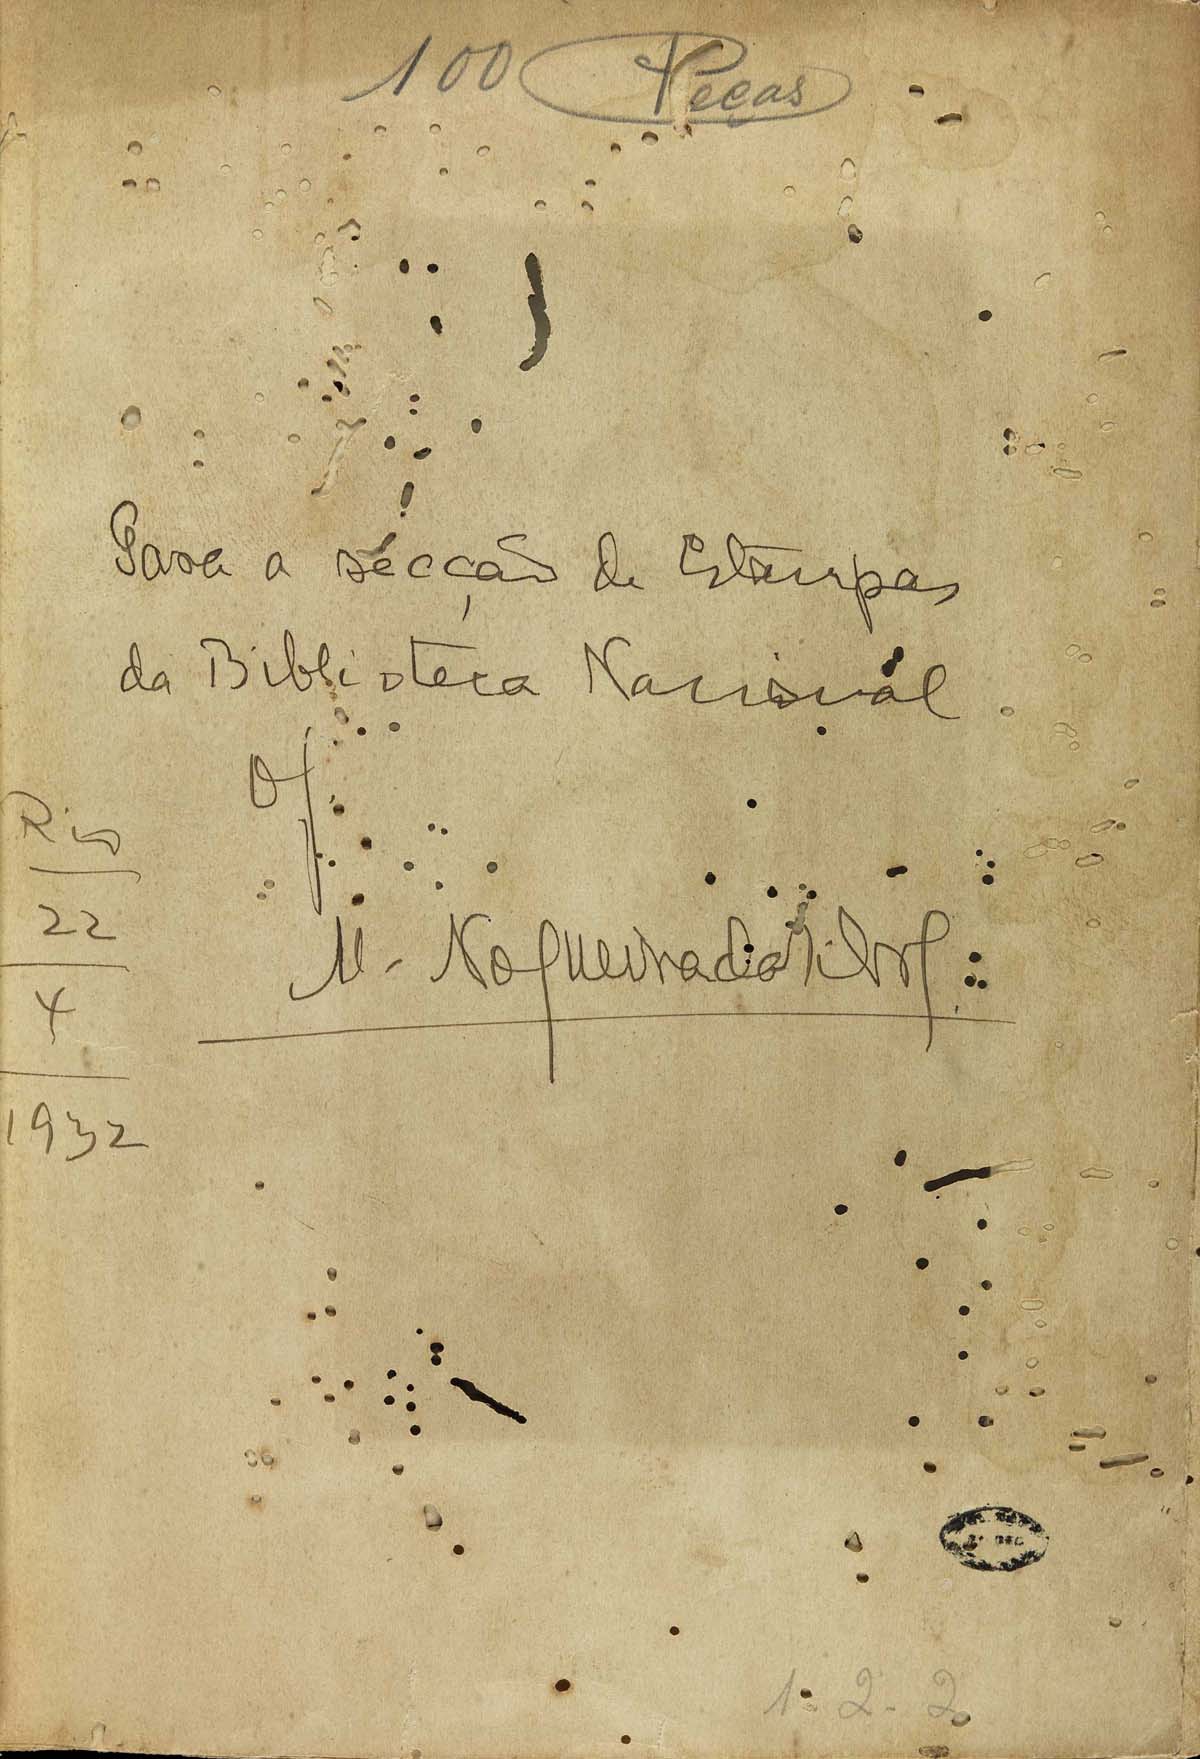 100 Peças
Para a secção de Estampas
da Bibliotheca Nacional.
Of.
M. Nogueira da Silva
Rio
22
4
1932
1-2-2